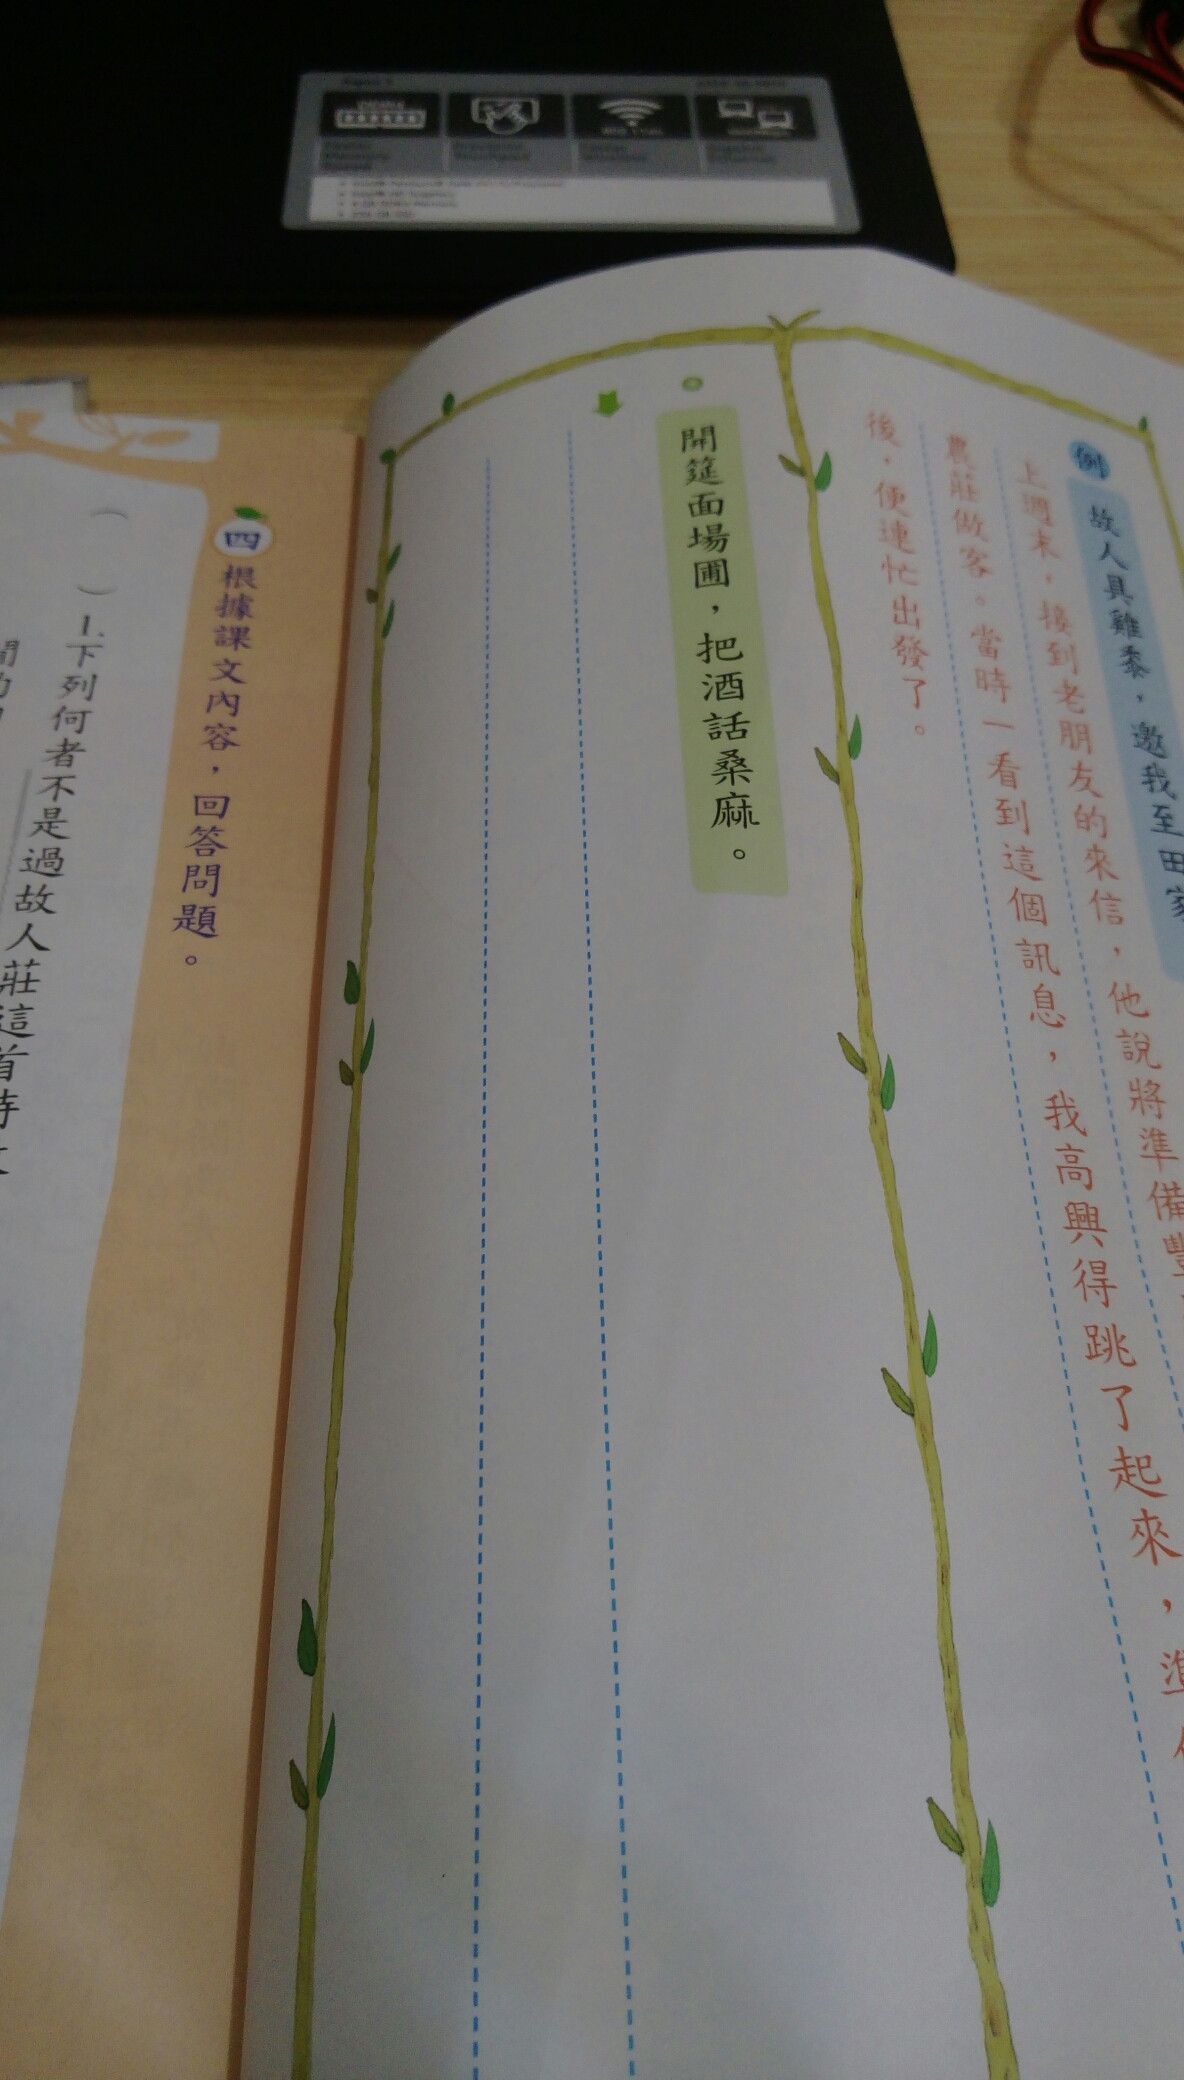 例
故人具雞黍，邀我至田家
上週末，接到老朋友的來信，他說將準備豐
農莊做客。當時一看到這個訊息，我高興得跳了起來，準
後，便連忙出發了。
開筵面場圃，把酒話桑麻。
四 根據課文內容，回答問題。
（ ）1.下列何者不是過故人莊這首詩